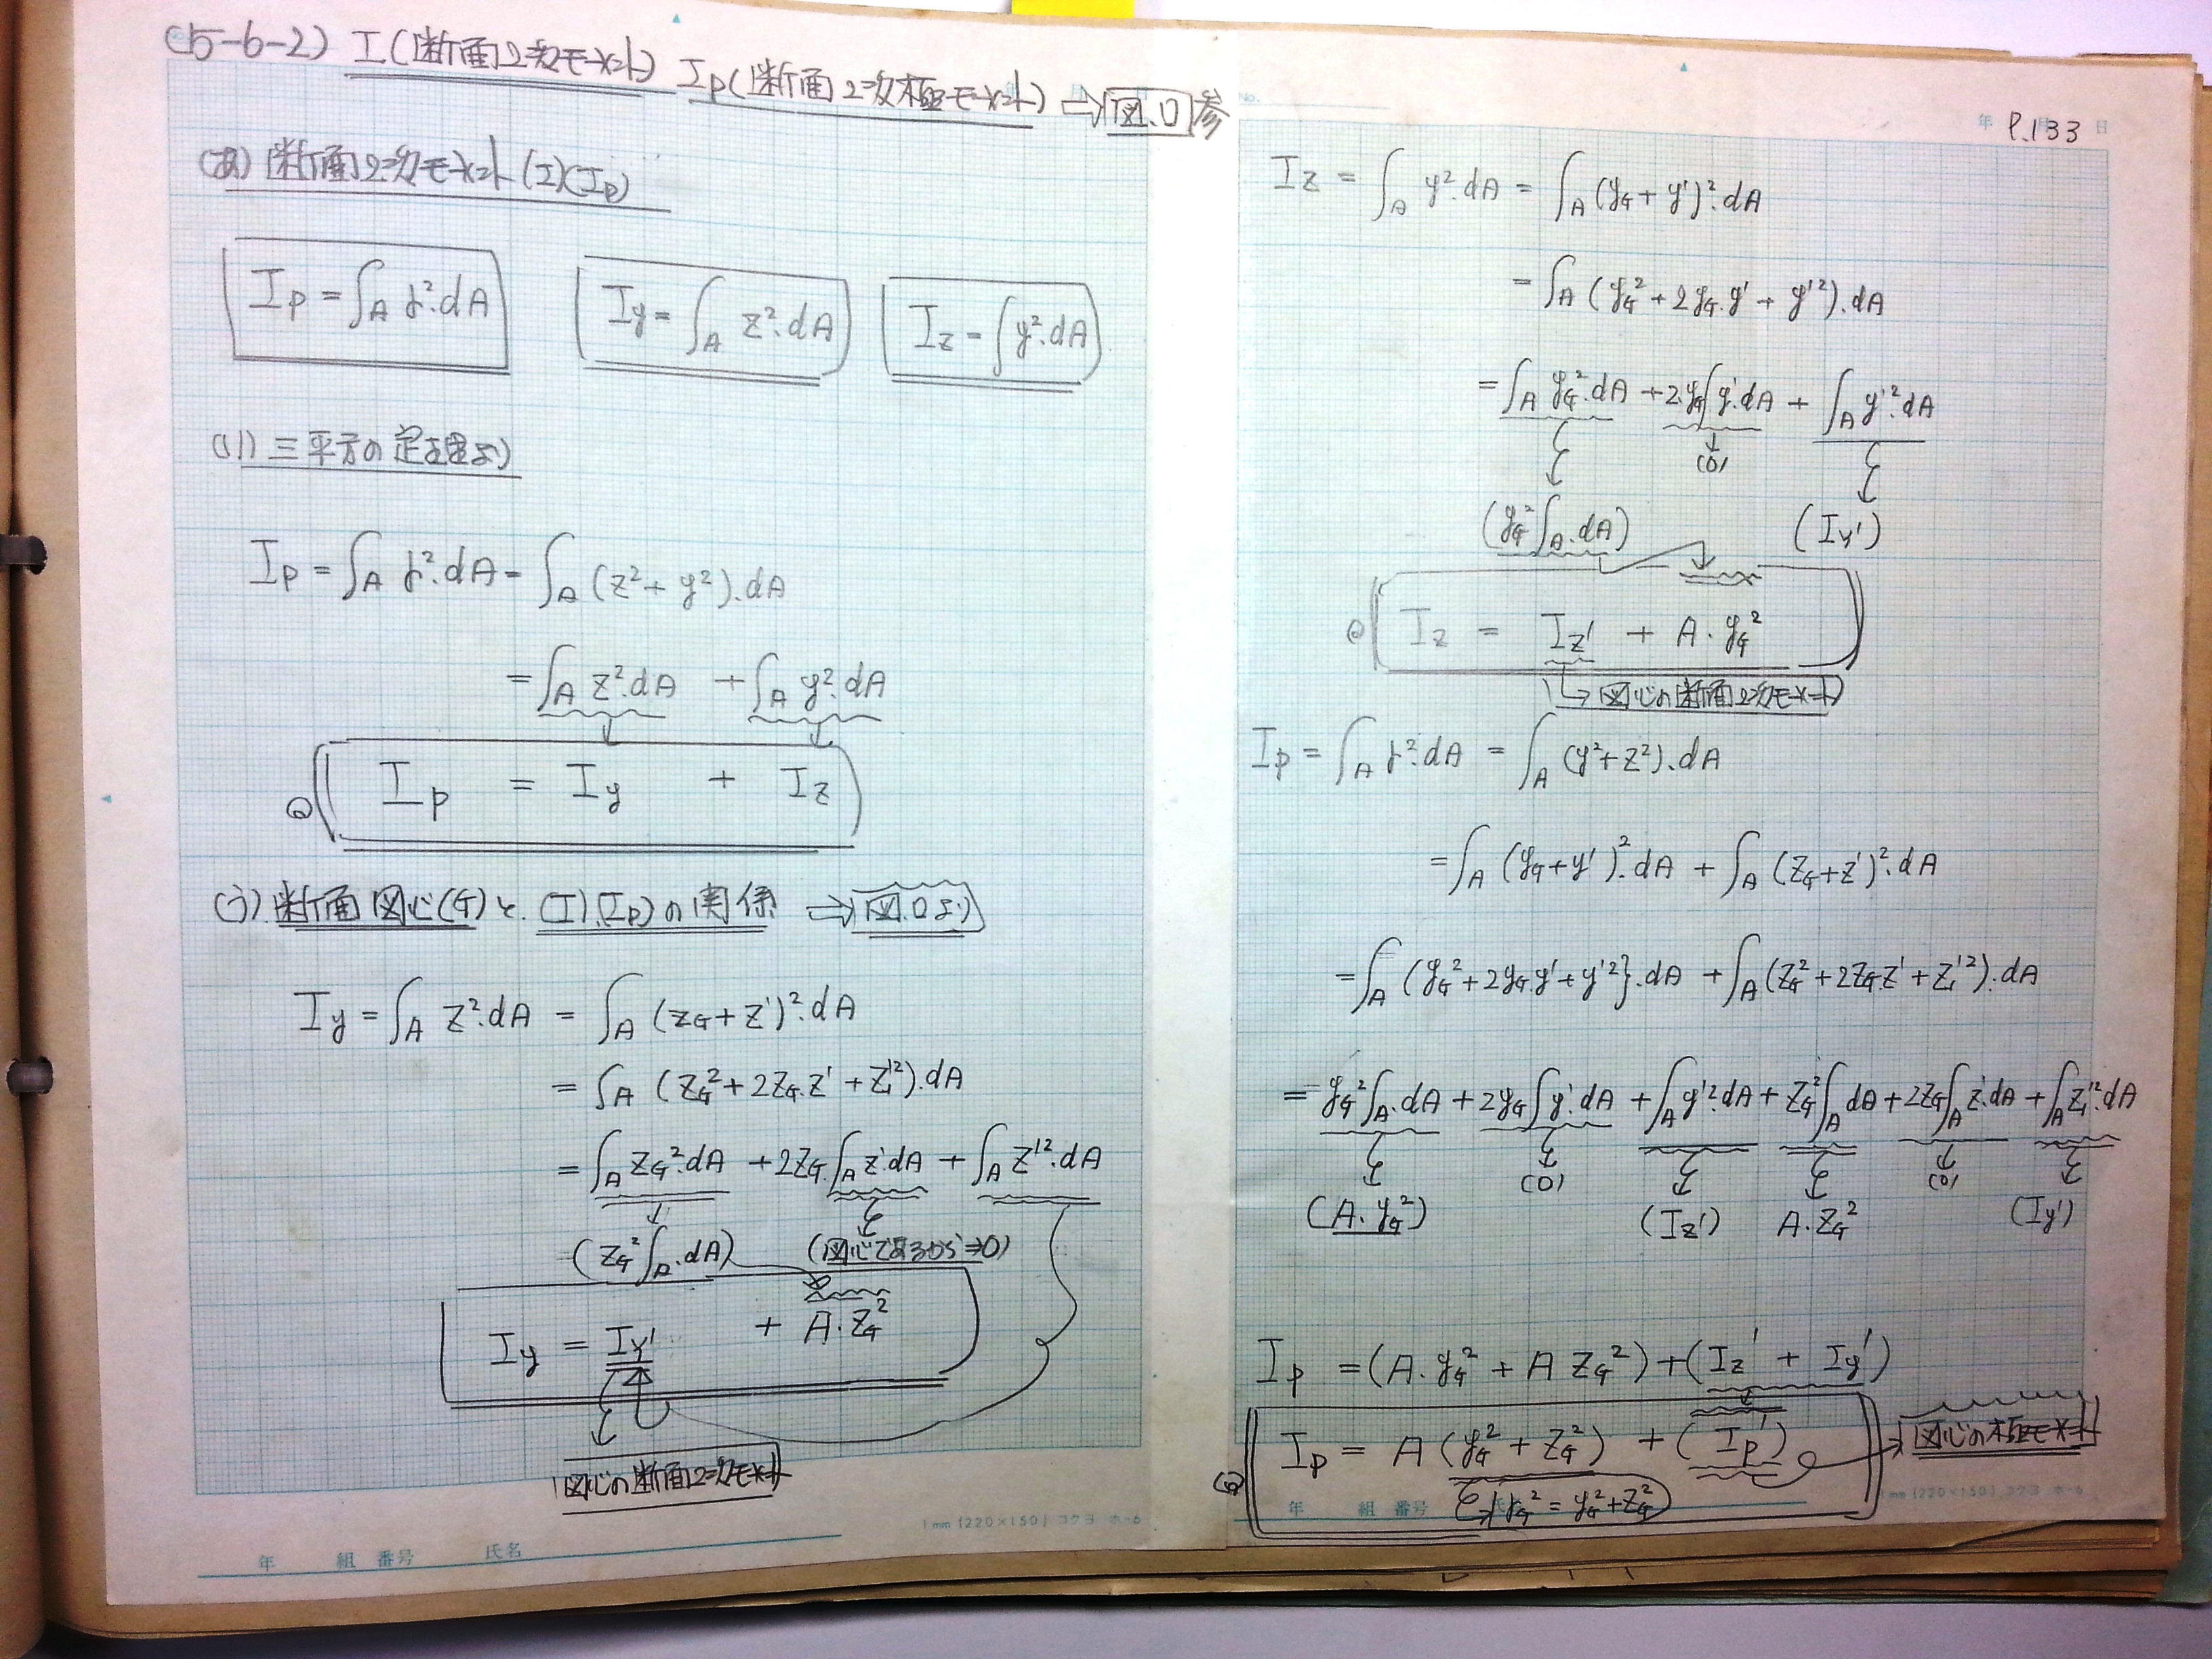 (5-6-2) I(断面2次モーメント) Ip(断面2次極モーメント) ⇒ 図.0 参
(あ) 断面2次モーメント (I)(Ip)
Ip = ∫A r².dA
Iy = ∫A z².dA
Iz = ∫ y².dA
(い) 三平方の定理より
Ip = ∫A r².dA = ∫A (z² + y²).dA
= ∫A z².dA + ∫A y².dA
Ip = Iy + Iz
(う). 断面図心(G)と.(I).(Ip)の関係 ⇒ 図.0より
Iy = ∫A z².dA = ∫A (zG + z')².dA
= ∫A (zG² + 2zG.z' + z'²).dA
= ∫A zG².dA + 2zG.∫A z'.dA + ∫A z'².dA
(zG²∫A.dA) (図心であるから⇒0)
Iy = Iy' + A.zG²
図心の断面2次モーメント
年 組 番号 氏名
1mm (220×150) コクヨ ホ-6
No.
年 月 日
P.133
Iz = ∫A y².dA = ∫A (yG + y')².dA
= ∫A (yG² + 2yG.y' + y'²).dA
= ∫A yG².dA + 2.yG∫y'.dA + ∫A y'².dA
(0)
(yG²∫A.dA) (Iy')
Iz = Iz' + A.yG²
↳ 図心の断面2次モーメント
Ip = ∫A r².dA = ∫A (y² + z²).dA
= ∫A (yG + y')².dA + ∫A (zG + z')².dA
= ∫A (yG² + 2yG.y' + y'²}.dA + ∫A (zG² + 2zG.z' + z'²).dA
= yG²∫A.dA + 2yG∫y'.dA + ∫A y'².dA + zG²∫A dA + 2zG∫A z'.dA + ∫A z'².dA
(A.yG²) (0) (Iz') A.zG² (0) (Iy')
Ip = (A.yG² + A zG²) + (Iz' + Iy')
Ip = A (yG² + zG²) + (Ip') → 図心の極モーメント
rG² = yG² + zG²
年 組 番号 氏
1mm (220×150) コクヨ ホ-6